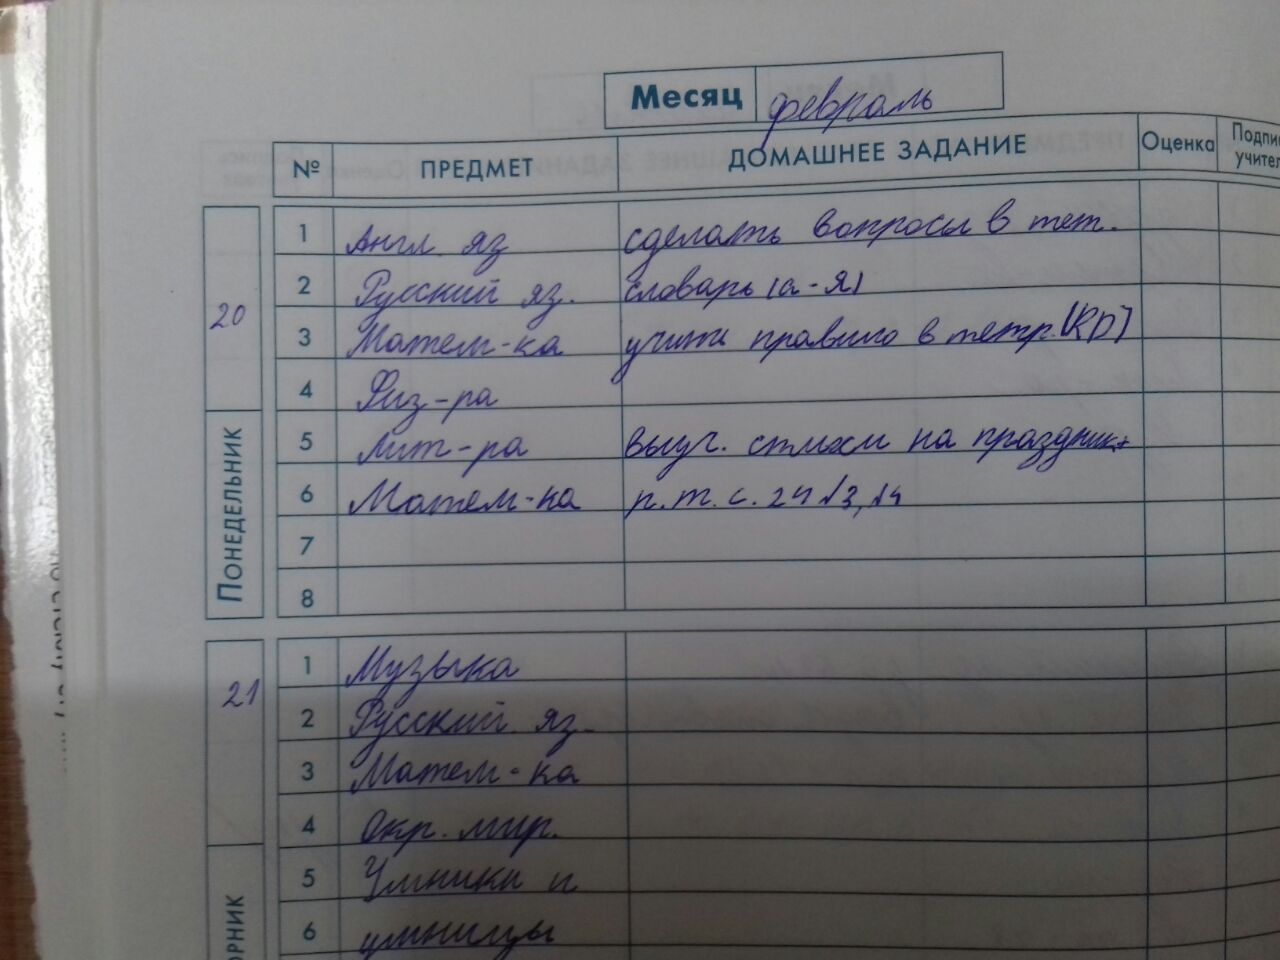 Месяц февраль
№ ПРЕДМЕТ ДОМАШНЕЕ ЗАДАНИЕ Оценка
20
Понедельник
1 Англ. яз сделать вопросы в тет.
2 Русский яз. словарь (а-я)
3 Матем-ка учить правило в тетр. (КР)
4 Физ-ра
5 Лит-ра выуч. стихи на праздник+
6 Матем-ка р.т. с. 24 №3, №4
7
8
21
1 Музыка
2 Русский яз.
3 Матем-ка
4 Окр. мир.
5 Умники и
6 умницы